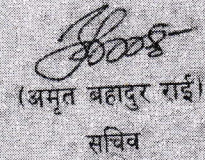 (अमृत बहादुर राई)
सचिव